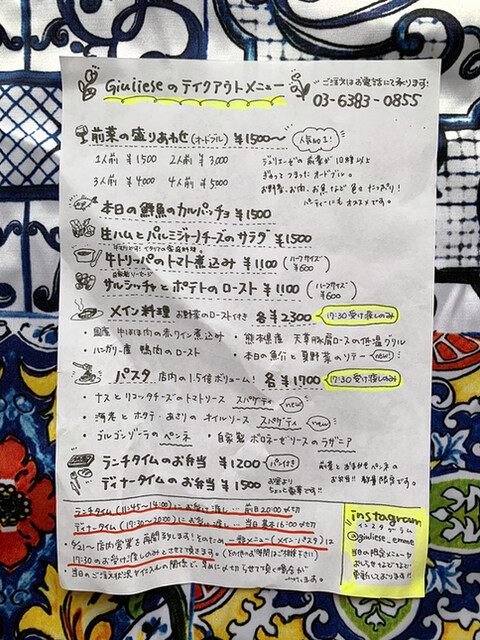 Giuliese のテイクアウトメニュー
ご注文はお電話にて承ります!
03-6383-0855
前菜の盛りあわせ(オードブル) ¥1500〜
人気No.1!
1人前 ¥1500 2人前 ¥3,000
3人前 ¥4000 4人前 ¥5000
ジュリエーゼの前菜が10種以上
ぎゅっとつまったオードブル。
お野菜、お肉、お魚など色々たっぷり!
パーティーにもオススメです。
本日の鮮魚のカルパッチョ ¥1500
生ハムとパルミジャーノチーズのサラダ ¥1500
牛トリッパのトマト煮込み ¥1100 (ハーフサイズ ¥600)
自家製ソーセージ
サルシッチャとポテトのロースト ¥1100 (ハーフサイズ ¥600)
メイン料理 お野菜のロースト付き 各¥2300 17:30受け渡しのみ
・国産 牛ほほ肉の赤ワイン煮込み
・熊本県産 天草豚肩ロースの低温グリル
・ハンガリー産 鴨肉のロースト
・本日の魚介と夏野菜のソテー new!
パスタ 店内の1.5倍ボリューム! 各¥1700 17:30受け渡しのみ
・ナスとリコッタチーズのトマトソース スパゲティ new
・海老とホタテ・あさりのオイルソース スパゲティ new
・ゴルゴンゾーラのペンネ ・自家製ボロネーゼソースのラザニア
ランチタイムのお弁当 ¥1200 パン付き
ディナータイムのお弁当 ¥1500
お昼より
ちょっと豪華です!!
前菜とおまかせペンネの
お弁当!! 数量限定です。
ランチタイム(11:45〜14:00)にお受け渡し… 前日20:00〆切
ディナータイム(17:30〜20:00)にお受け渡し… 当日基本16:00〆切
・6/21〜店内営業を再開致します!そのため、一部メニュー(メイン・パスタ)は
17:30のお受け渡しのみとさせて頂きます。(その他のお時間はご相談下さい)
当日のご注文状況やイベントの関係で、早めに〆切らせて頂く場合が
ございます。
instagram
インスタグラム
@giuliese_emme
当日の限定メニューや
お知らせなどなど
更新しております!!